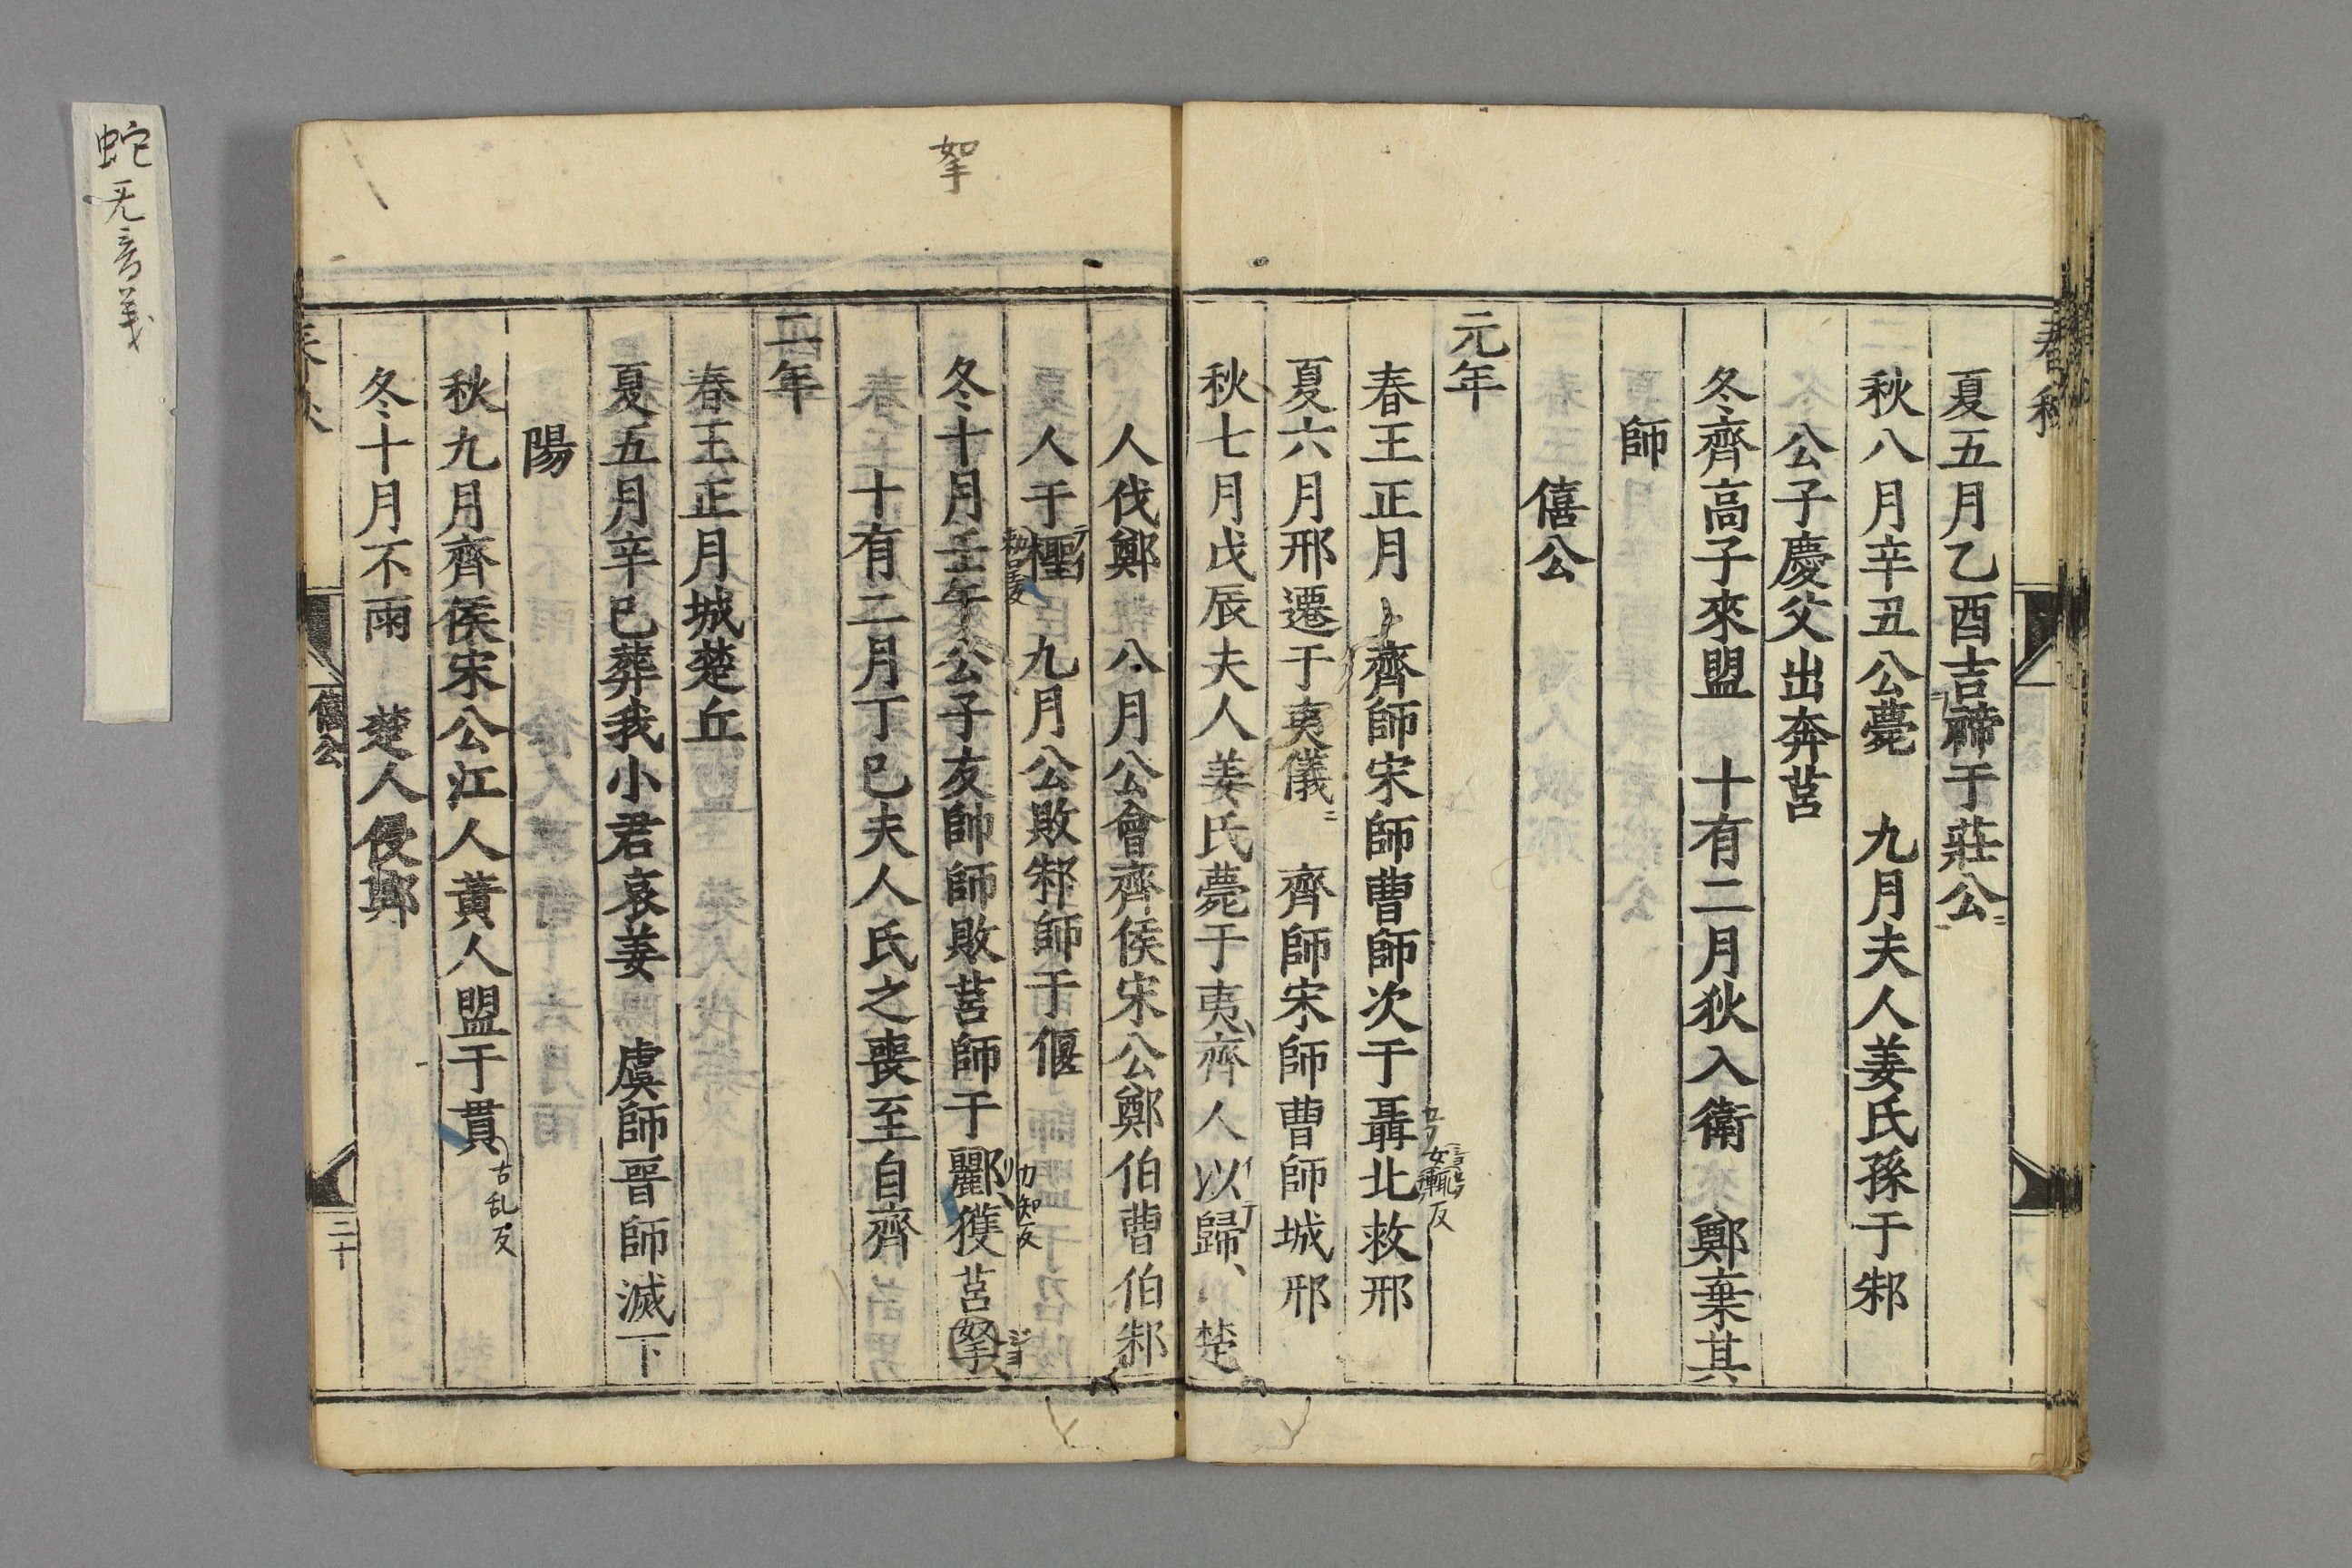 春秋
夏五月乙酉吉禘于莊公
秋八月辛丑公薨　九月夫人姜氏孫于邾
公子慶父出奔莒
冬齊高子來盟　十有二月狄入衛　鄭棄其
師
僖公
元年
春王正月　齊師宋師曹師次于聶北救邢
女輒反
夏六月邢遷于夷儀　齊師宋師曹師城邢
秋七月戊辰夫人姜氏薨于夷齊人以歸、楚
人伐鄭　八月公會齊侯宋公鄭伯曹伯邾
人于檉　九月公敗邾師于偃
冬十月壬午公子友帥師敗莒師于酈獲莒挐
力知反
ジヨ
挐
十有二月丁巳夫人氏之喪至自齊
二年
春王正月城楚丘
夏五月辛巳葬我小君哀姜　虞師晉師滅下
陽
秋九月齊侯宋公江人黃人盟于貫
古乱反
冬十月不雨　楚人侵鄭
僖公
二十
蛇无音義